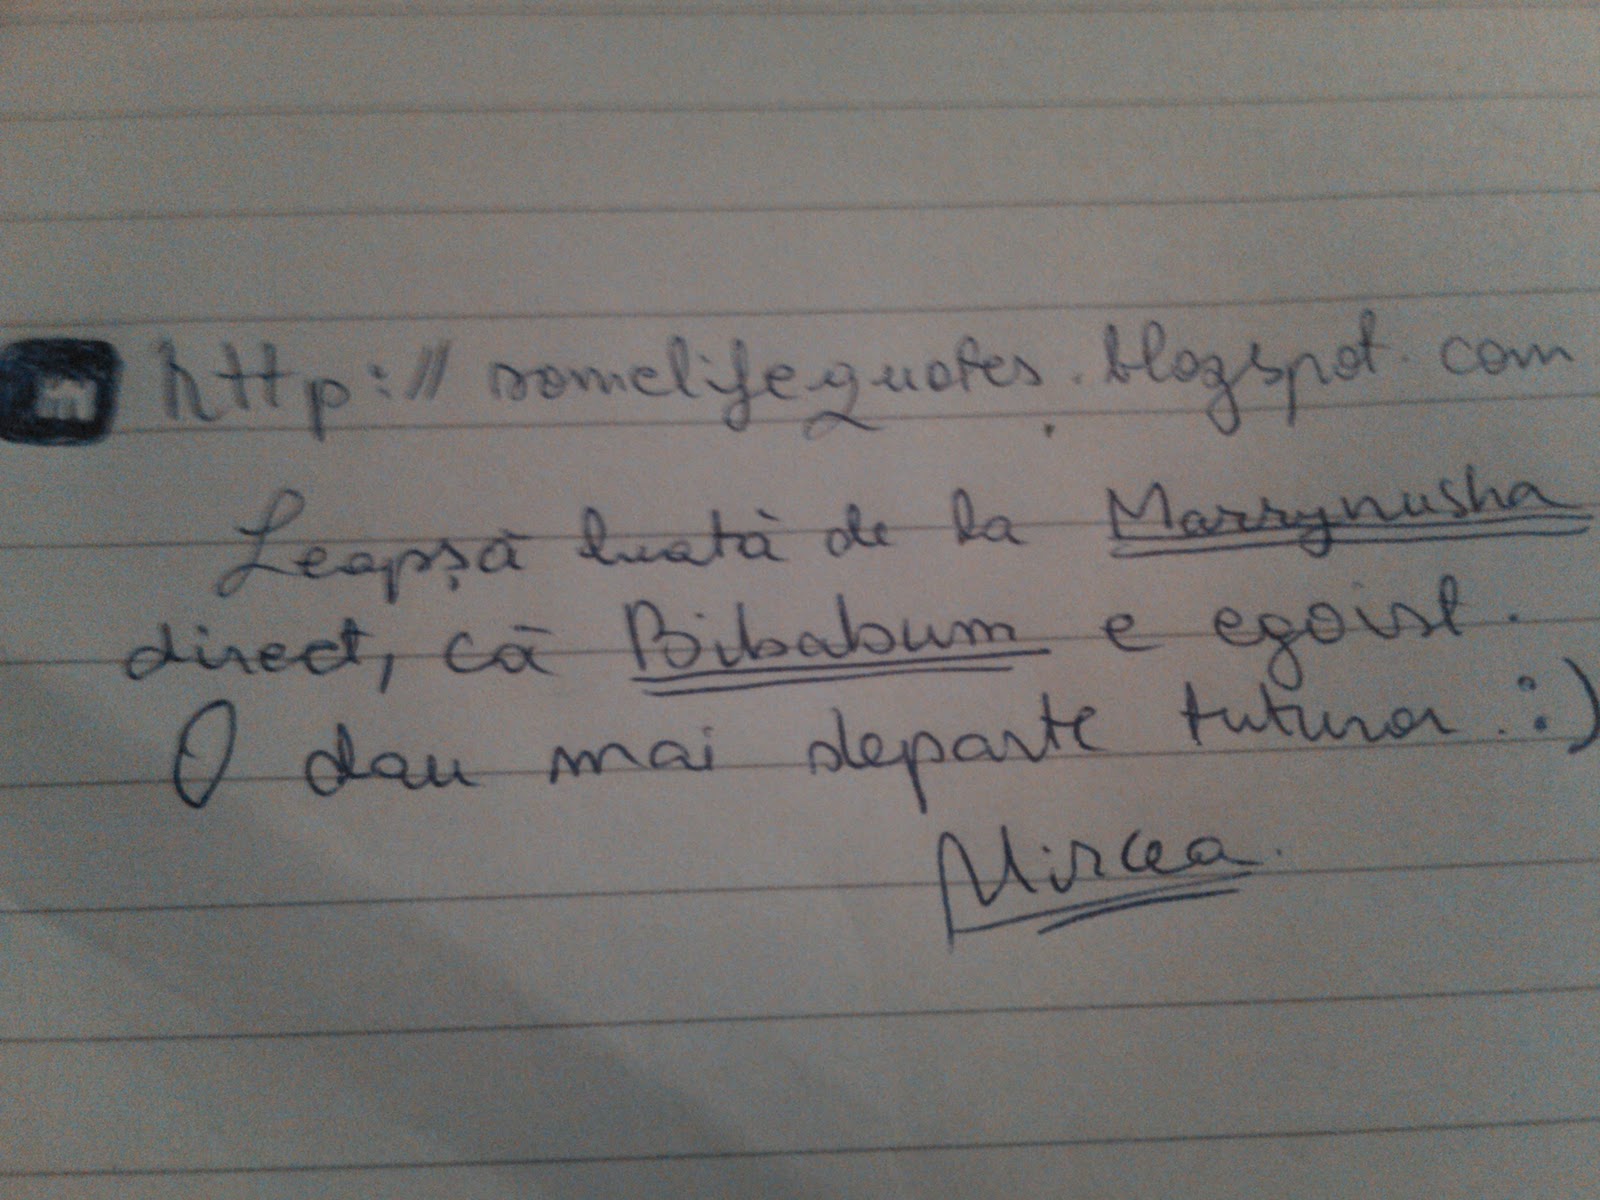 http://somelifequotes.blogspot.com
Leapșă luată de la Marrynusha
direct, că Bibabum e egoist.
O dau mai departe tuturor. :)
Mircea.